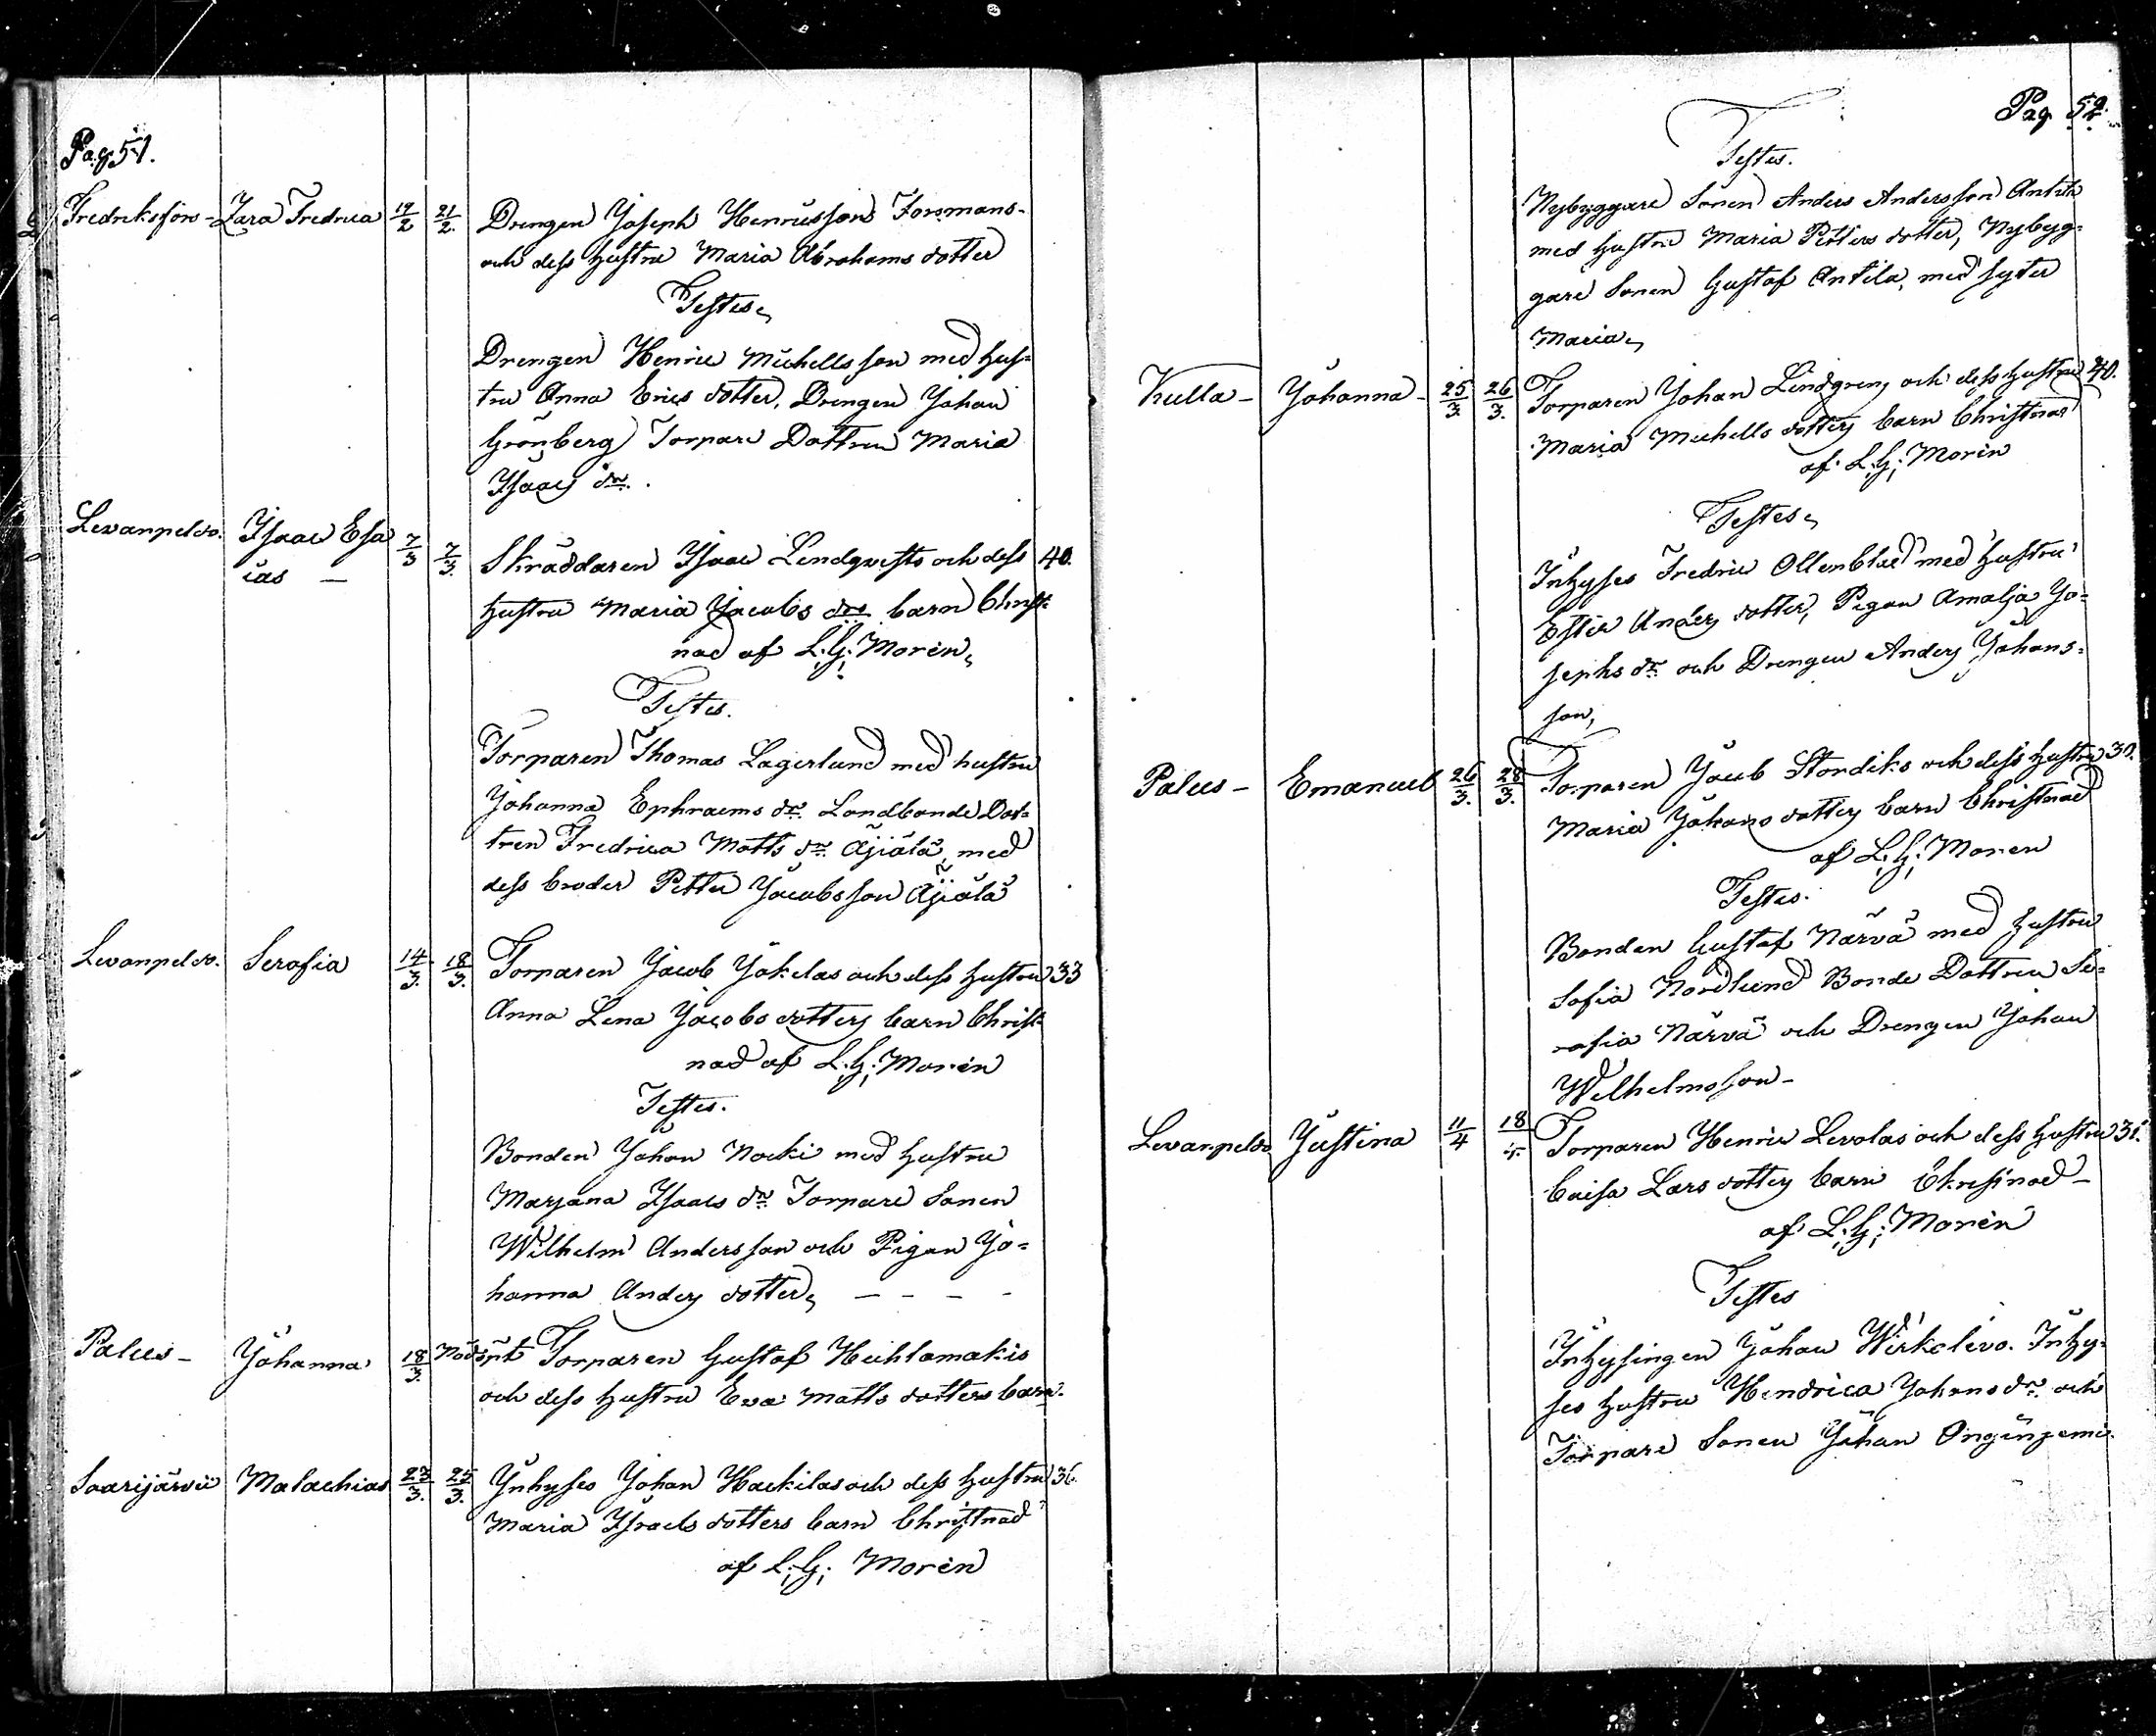 Pag. 51.
Fredriksfors - Zara Fredrica 19/2 21/2. Drengen Joseph Henricssons Forsmans-
och dess hustru Maria Abrahams dotter
Testes,
Drengen Henric Michellsson med hus-
tru Anna Erics dotter, Drengen Johan
Grönberg Torpare Dottren Maria
Isaacs dr.
Levanpeldo. Isaac Esa 7/3 7/3. Skräddaren Isaac Lindqvists och dess 40.
ias - hustru Maria Jacobs drs barn Christ-
nad af L. G. Morin,
Testes.
Torparen Thomas Lagerlund med hustru
Johanna Ephraims dr. Landbonde Dot-
tren Fredrica Matts dr. Äjälä, med
dess broder Petter Jacobsson Äjälä
Levanpeldo. Serafia 14/3. 18/3. Torparen Jacob Jokelas och dess hustru 33
Anna Lena Jacobs dotters barn Christ-
nad af L. G. Morin
Testes.
Bonden Johan Nocki med hustru
Marjana Isaacs dr Torpare Sonen
Wilhelm Andersson och Pigan Jo-
hanna Anders dotter, - - - -
Palus - Johanna 18/3. Nödöpt Torparen Gustaf Huhtamakis
och dess hustru Eva Matts dotters barn.
Saarijärvi Malachias 23/3. 25/3. Inhyses Johan Hackilas och dess hustru 36.
Maria Israels dotters barn Christnad
af L. G. Morin
Pag. 52.
Testes.
Nybyggare Sonen Anders Andersson Antila
med hustru Maria Petters dotter, Nybyg-
gare Sonen Gustaf Antila, med syster
Maria,
Kulla - Johanna - 25/3. 26/3. Torparen Johan Lindgrens och dess hustru 40.
Maria Michells dotters barn Christnad
af L. G. Morin
Testes,
Inhyses Fredric Ollonblad med hustru
Ester Anders dotter, Pigan Amalja Jo-
sephs dr och Drengen Anders Johans-
son,
Palus - Emanuel 26/3. 28/3. Torparen Jacob Stordiks och dess hustru 30.
Maria Johans dotters barn Christnad
af L. G. Morin
Testes.
Bonden Gustaf Närvä med hustru
Sofia Nordlund Bonde Dottren Se-
rafia Närvä och Drengen Johan
Wilhelmsson -
Levanpeldo Justina 11/4 18/4. Torparen Henric Levolas och dess hustru 31.
Caisa Lars dotters barn Christnad -
af L. G. Morin
Testes
Inhysingen Johan Wirkelivo. Inhy-
ses hustru Hendrica Johans dr och
Torpare Sonen Johan